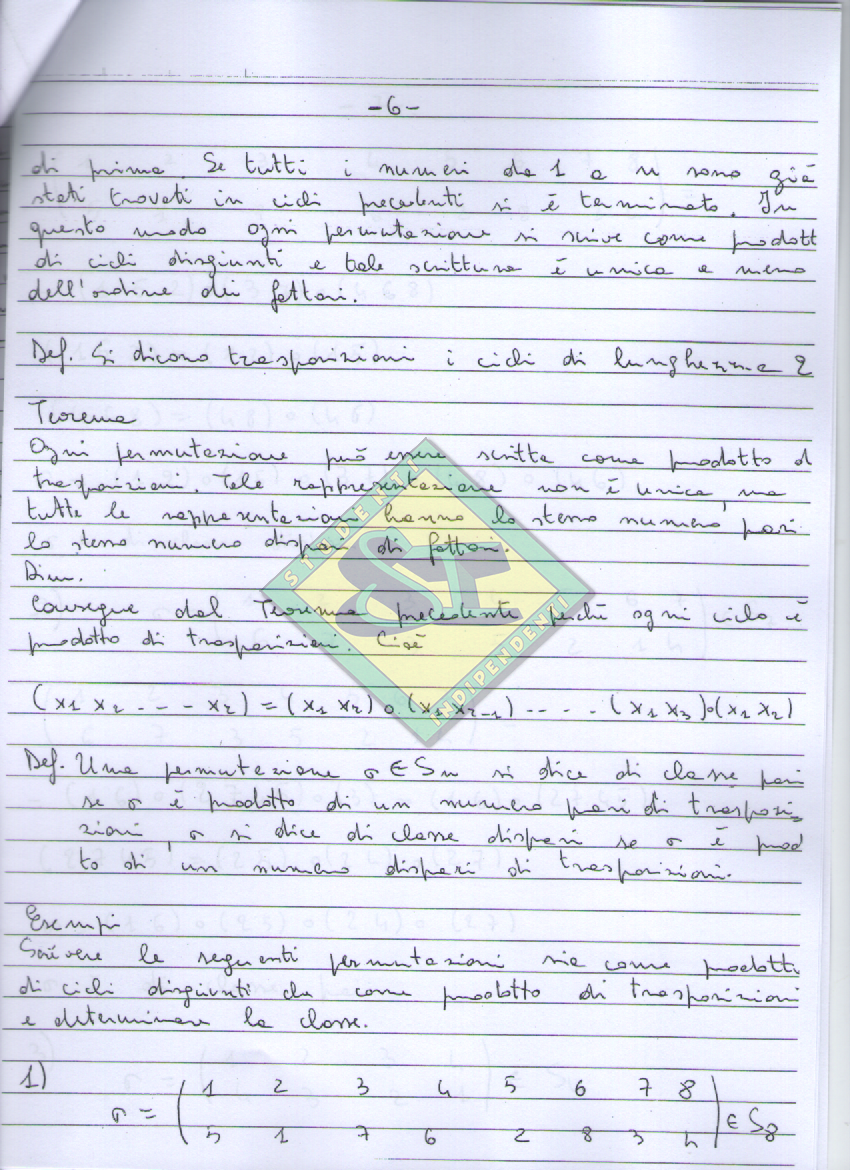 -6-
di prima. Se tutti i numeri da 1 a n sono già
stati trovati in cicli precedenti si è terminato. In
questo modo ogni permutazione si scrive come prodott
di cicli disgiunti e tale scrittura è unica a meno
dell'ordine dei fattori.
Def. Si dicono trasposizioni i cicli di lunghezza 2
Teorema
Ogni permutazione può essere scritta come prodotto d
trasposizioni. Tale rappresentazione non è unica, ma
tutte le rappresentazioni hanno lo stesso numero pari
lo stesso numero dispari di fattori.
Dim.
Consegue dal Teorema precedente perchè ogni ciclo è
prodotto di trasposizioni. Cioè
(x1 x2 - - - xr) = (x1 xr) o (x1 xr-1) - - - - (x1 x3) o (x1 x2)
Def. Una permutazione σ ∈ Sn si dice di classe pari
se σ è prodotto di un numero pari di trasposi-
zioni, σ si dice di classe dispari se σ è prod
to di un numero dispari di trasposizioni.
Esempi
Scrivere le seguenti permutazioni sia come prodotti
di cicli disgiunti che come prodotto di trasposizioni
e determinare la classe.
1)
σ = ( 1 2 3 4 5 6 7 8 ) ∈ S8
5 1 7 6 2 8 3 4
STUDENTI
INDIPENDENTI